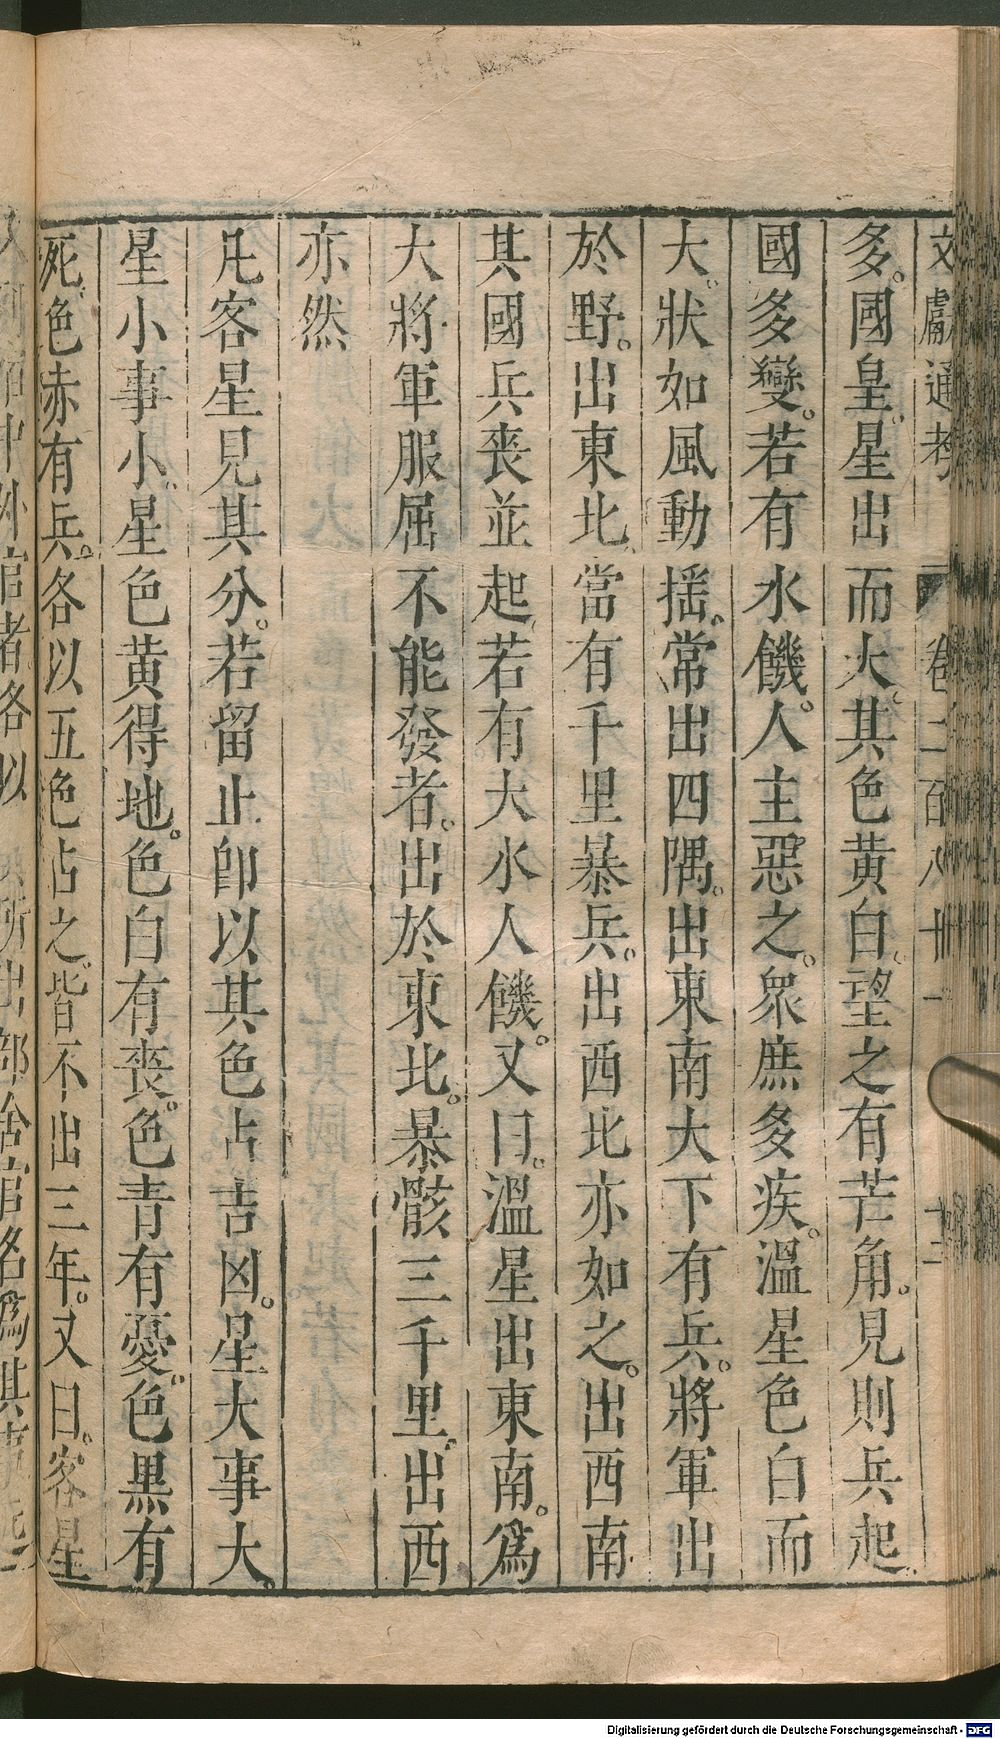 文獻通考 卷二百八十一 十二
多。國皇。星出而大。其色黃白。望之有芒角。見則兵起
國多變。若有水饑。人主惡之。眾庶多疾。溫星色白而
大。狀如風動搖。常出四隅。出東南大下有兵。將軍出
於野。出東北。當有千里暴兵。出西北亦如之。出西南
其國兵喪並起。若有大水人饑。又曰。溫星出東南。為
大將軍服屈不能發者。出於東北。暴骸三千里。出西
亦然
凡客星見其分。若留止卽以其色占吉凶。星大事大。
星小事小。星色黃得地。色白有喪。色青有憂。色黑有
死。色赤有兵。各以五色占之。皆不出三年。又曰。客星
中外官者各以 所出部舍官名為其事
Digitalisierung gefördert durch die Deutsche Forschungsgemeinschaft - DFG